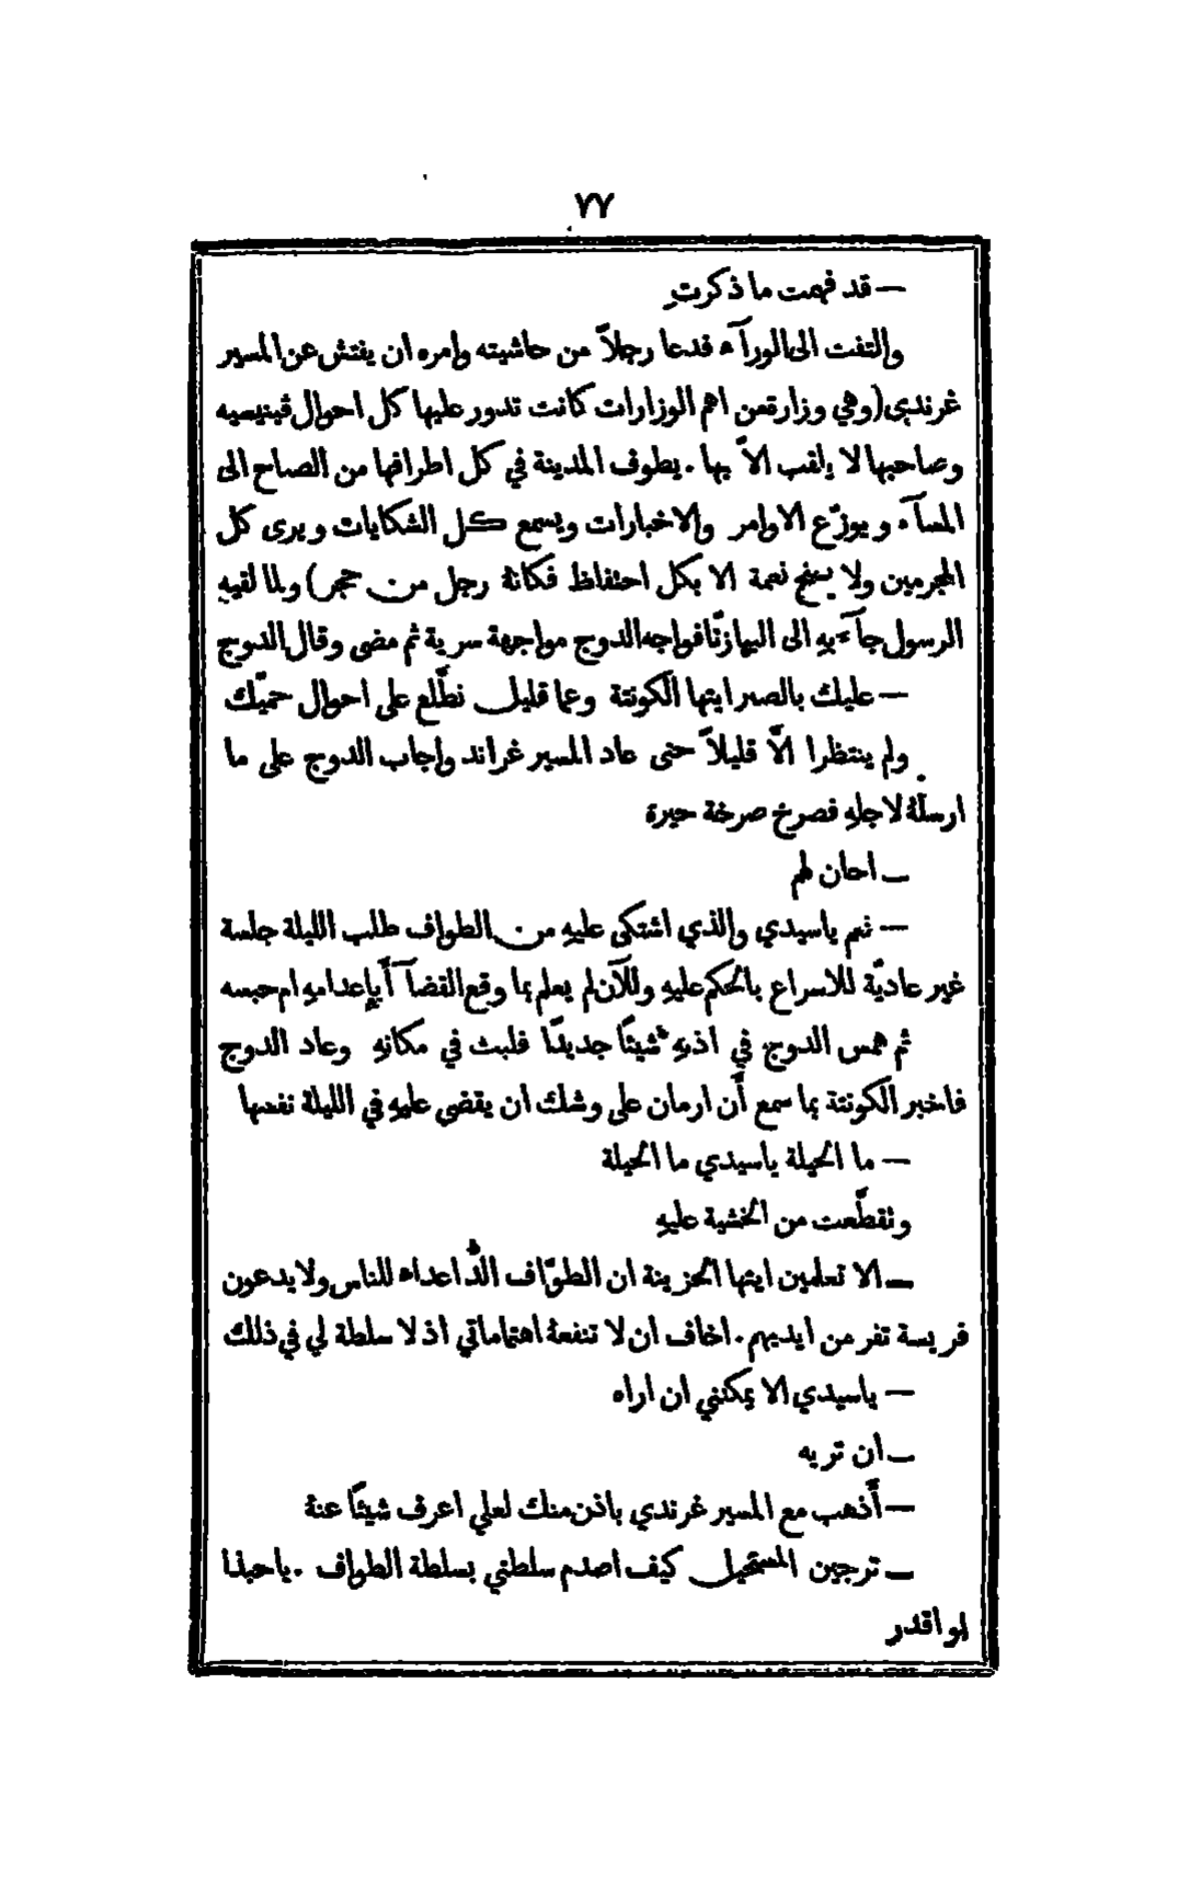 ٧٧
— قد فهمت ما ذكرتِ
والتفت الى الورآء فدعا رجلاً من حاشيته وامره ان يفتش عن المسير
غرندي (وهي وزارة من اهم الوزارات كانت تدور عليها كل احوال فينيسيه
وصاحبها لا يلقب الاّ بها . يطوف المدينة في كل اطرافها من الصباح الى
المسآء ويوزّع الاوامر والاخبارات ويسمع كل الشكايات ويرى كل
المجرمين ولا يمنح نعمة الا بكل احتفاظ فكانهُ رجل من حجر) ولما لقيهِ
الرسول جآء بهِ الى البيازتّا فواجه الدوج مواجهة سرية ثم مضى وقال الدوج
— عليك بالصبر ايتها الكونتة وعما قليل نطّلع على احوال حميّك
ولم ينتظرا الاّ قليلاً حتى عاد المسير غراند واجاب الدوج على ما
ارسلهُ لاجلهِ فصرخ صرخة حيرة
— احان لهم
— نعم ياسيدي والذي اشتكى عليهِ من الطواف طلب الليلة جلسة
غير عاديّة للاسراع بالحكم عليهِ وللآن لم يعلم بما وقع القضآ أبإعدامهِ ام حبسه
ثم همس الدوج في اذنهِ شيئًا جديدًا فلبث في مكانهِ وعاد الدوج
فاخبر الكونتة بما سمع أن ارمان على وشك ان يقضى عليهِ في الليلة نفسها
— ما الحيلة ياسيدي ما الحيلة
وتقطّعت من الخشية عليهِ
— الا تعلمين ايتها الحزينة ان الطوّاف الدُّ اعداء للناس ولا يدعون
فريسة تفر من ايديهم . اخاف ان لا تنفعهُ اهتماماتي اذ لا سلطة لي في ذلك
— ياسيدي الا يمكنني ان اراه
— ان تريه
— أذهب مع المسير غرندي باذن منك لعلي اعرف شيئًا عنهُ
— ترجين المستحيل كيف اصدم سلطتي بسلطة الطواف . ياحبذا
لو اقدر